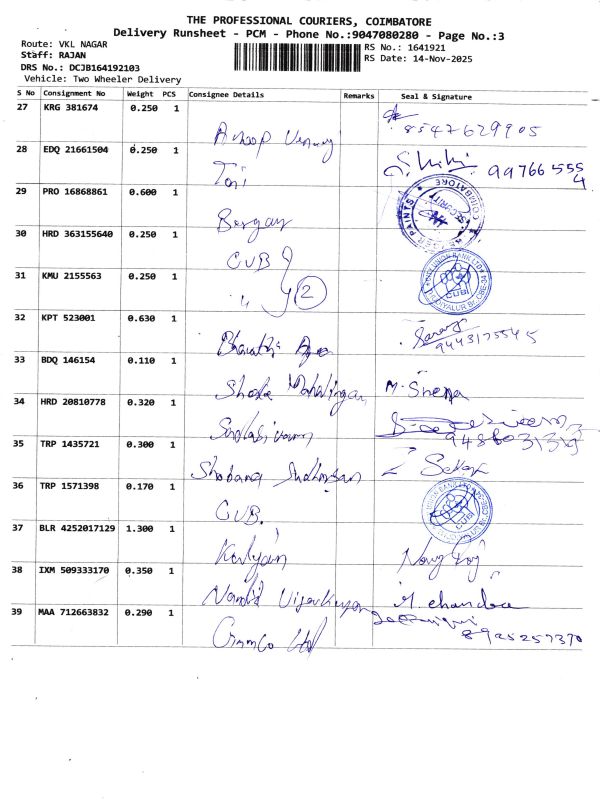 THE PROFESSIONAL COURIERS, COIMBATORE
Delivery Runsheet - PCM - Phone No.:9047080280 - Page No.:3
Route: VKL NAGAR
RS No.: 1641921
Staff: RAJAN
RS Date: 14-Nov-2025
DRS No.: DCJB164192103
Vehicle: Two Wheeler Delivery
S No Consignment No Weight PCS Consignee Details Remarks Seal & Signature
27 KRG 381674 0.250 1 Anoop 8547629905
28 EDQ 21661504 0.250 1 Tori 997665554
29 PRO 16868861 0.600 1 Berger SECURITY COIMBATORE
30 HRD 363155640 0.250 1 CUB
31 KMU 2155563 0.250 1 " 2 CUB
32 KPT 523001 0.630 1 Bharathi 9443175545
33 BDQ 146154 0.110 1 M. Sneha
34 HRD 20810778 0.320 1
35 TRP 1435721 0.300 1 Shobana
36 TRP 1571398 0.170 1 CUB. CUB
37 BLR 4252017129 1.300 1 Kalyan
38 IXM 509333170 0.350 1 M. chandra
39 MAA 712663832 0.290 1 Ltd 8925257370